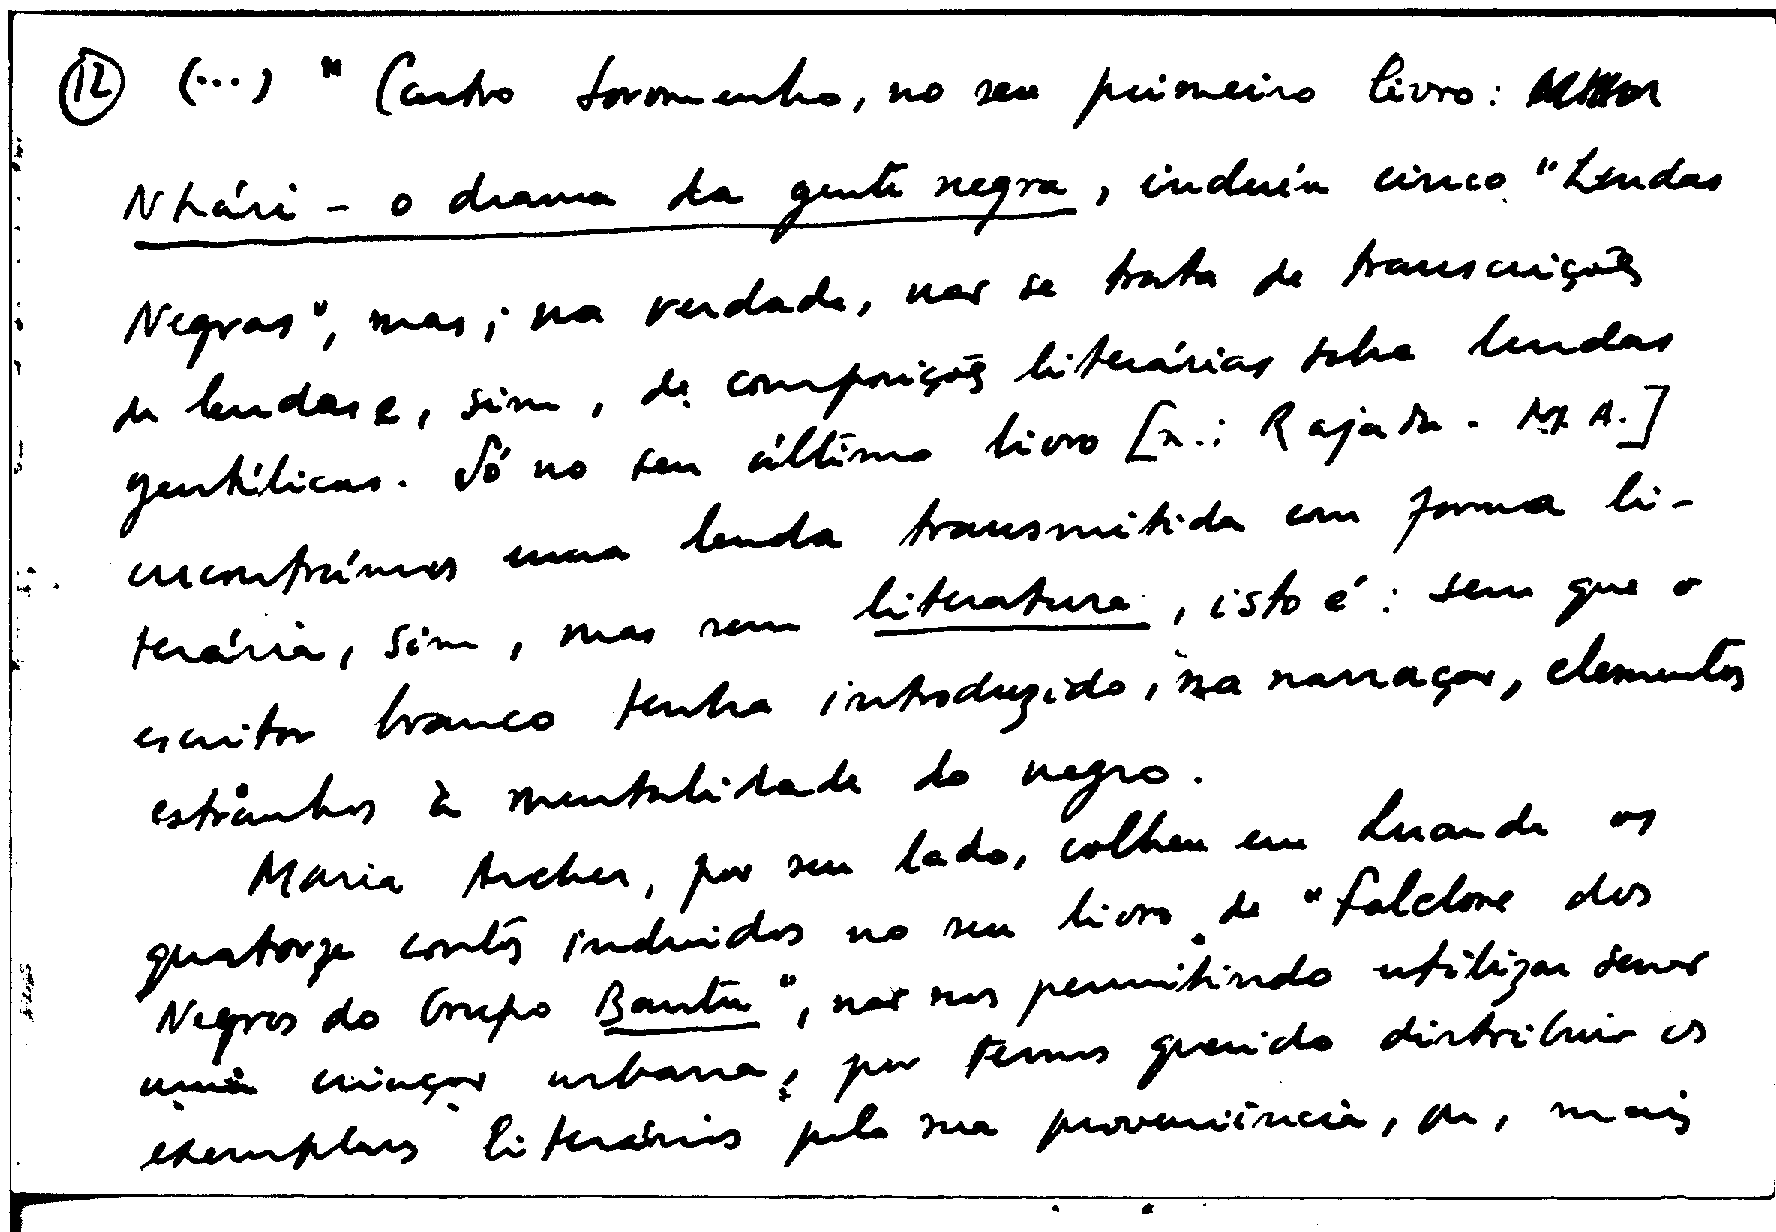 12 (...) "Castro Soromenho, no seu primeiro livro:
Nhári - o drama da gente negra, incluiu cinco "Lendas
Negras", mas, na verdade, não se trata de transcrições
de lendas e, sim, de composições literárias sobre lendas
gentílicas. Só no seu último livro [n.: Rajada. M. A.]
encontrámos uma lenda transmitida em forma li-
terária, sim, mas sem literatura, isto é: sem que o
escritor branco tenha introduzido, na narração, elementos
estranhos à mentalidade do negro.
Maria Archer, por seu lado, colheu em Luanda os
quatorze contos incluidos no seu livro de "Folclore dos
Negros do Grupo Bantu", não nos permitindo utilizar senão
uma criação urbana, por termos querido distribuir os
exemplares literários pela sua proveniência, ou, mais